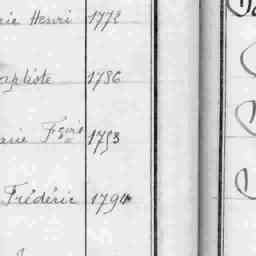 rie Henri 1772
aptiste 1786
arie Fçois 1793
Frédéric 1794